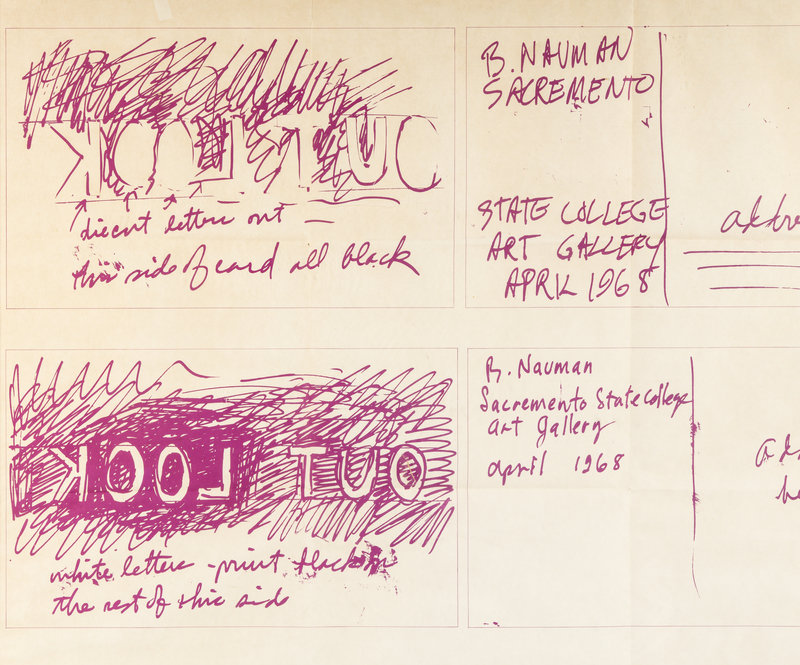 KOOL TUO
diecut letters out
this side of card all black
B. NAUMAN
SACREMENTO
STATE COLLEGE
ART GALLERY
APRIL 1968
KOOL TUO
white letters - print black on
the rest of this side
B. Nauman
Sacremento State College
art gallery
april 1968